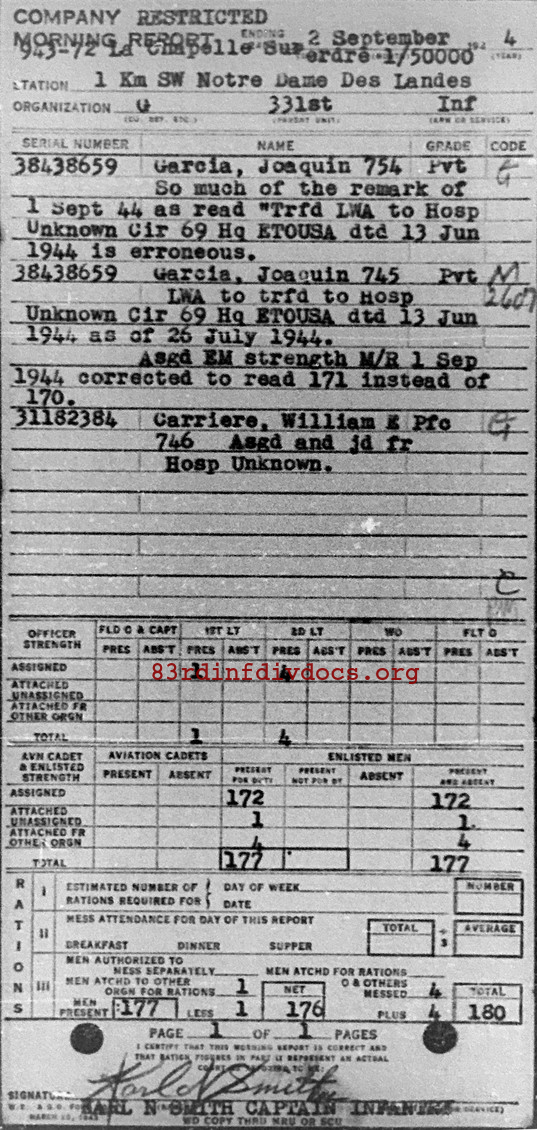 COMPANY RESTRICTED
MORNING REPORT ENDING 2 September 194 4
943-72 La Chapelle Sur erdre 1/50000 (YEAR)
STATION 1 Km SW Notre Dame Des Landes
ORGANIZATION G 331st Inf
(CO, DET, ETC.) (PARENT UNIT) (ARM OR SERVICE)
SERIAL NUMBER NAME GRADE CODE
38438659 Garcia, Joaquin 754 Pvt G
So much of the remark of
1 Sept 44 as read "Trfd LWA to Hosp
Unknown Cir 69 Hq ETOUSA dtd 13 Jun
1944 is erroneous.
38438659 Garcia, Joaquin 745 Pvt M
LWA to trfd to Hosp 2607
Unknown Cir 69 Hq ETOUSA dtd 13 Jun
1944 as of 26 July 1944.
Asgd EM strength M/R 1 Sep
1944 corrected to read 171 instead of
170.
31182384 Carriere, William E Pfc G
746 Asgd and jd fr
Hosp Unknown.
C
OFFICER STRENGTH FLD O & CAPT 1ST LT 2D LT WO FLT O
PRES ABS'T PRES ABS'T PRES ABS'T PRES ABS'T PRES ABS'T
ASSIGNED 1 4
83rdinfdivdocs.org
ATTACHED UNASSIGNED
ATTACHED FR OTHER ORGN
TOTAL 1 4
AVN CADET & ENLISTED STRENGTH AVIATION CADETS ENLISTED MEN
PRESENT ABSENT PRESENT FOR DUTY PRESENT NOT FOR DY ABSENT PRESENT AND ABSENT
ASSIGNED 172 172
ATTACHED UNASSIGNED 1 1
ATTACHED FR OTHER ORGN 4 4
TOTAL 177 177
RATIONS
I ESTIMATED NUMBER OF RATIONS REQUIRED FOR DAY OF WEEK DATE NUMBER
II MESS ATTENDANCE FOR DAY OF THIS REPORT TOTAL ÷ 3 AVERAGE
BREAKFAST DINNER SUPPER
III MEN AUTHORIZED TO MESS SEPARATELY MEN ATCHD FOR RATIONS
MEN ATCHD TO OTHER ORGN FOR RATIONS 1 NET O & OTHERS MESSED 4 TOTAL
MEN PRESENT 177 LESS 1 176 PLUS 4 180
PAGE 1 OF 1 PAGES
I CERTIFY THAT THIS MORNING REPORT IS CORRECT AND
THAT RATION FIGURES IN PART II REPRESENT AN ACTUAL
SIGNATURE Karl N Smith
KARL N SMITH CAPTAIN INFANTRY
MARCH 10, 1943 WD COPY THRU MRU OR SCU